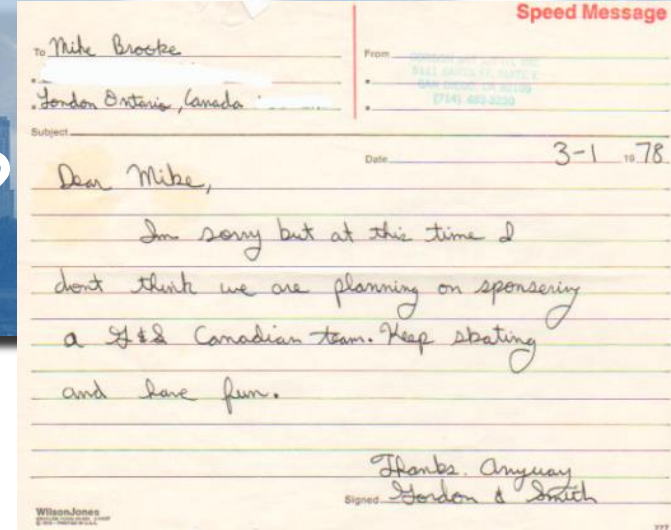 Speed Message
To Mike Brooke
London Ontario, Canada
From
(714)
Subject
Date 3-1 19 78
Dear Mike,
Im sorry but at this time I
dont think we are planning on sponsering
a G&S Canadian team. Keep skating
and have fun.
Thanks. Anyway
Signed Gordon & Smith
WilsonJones